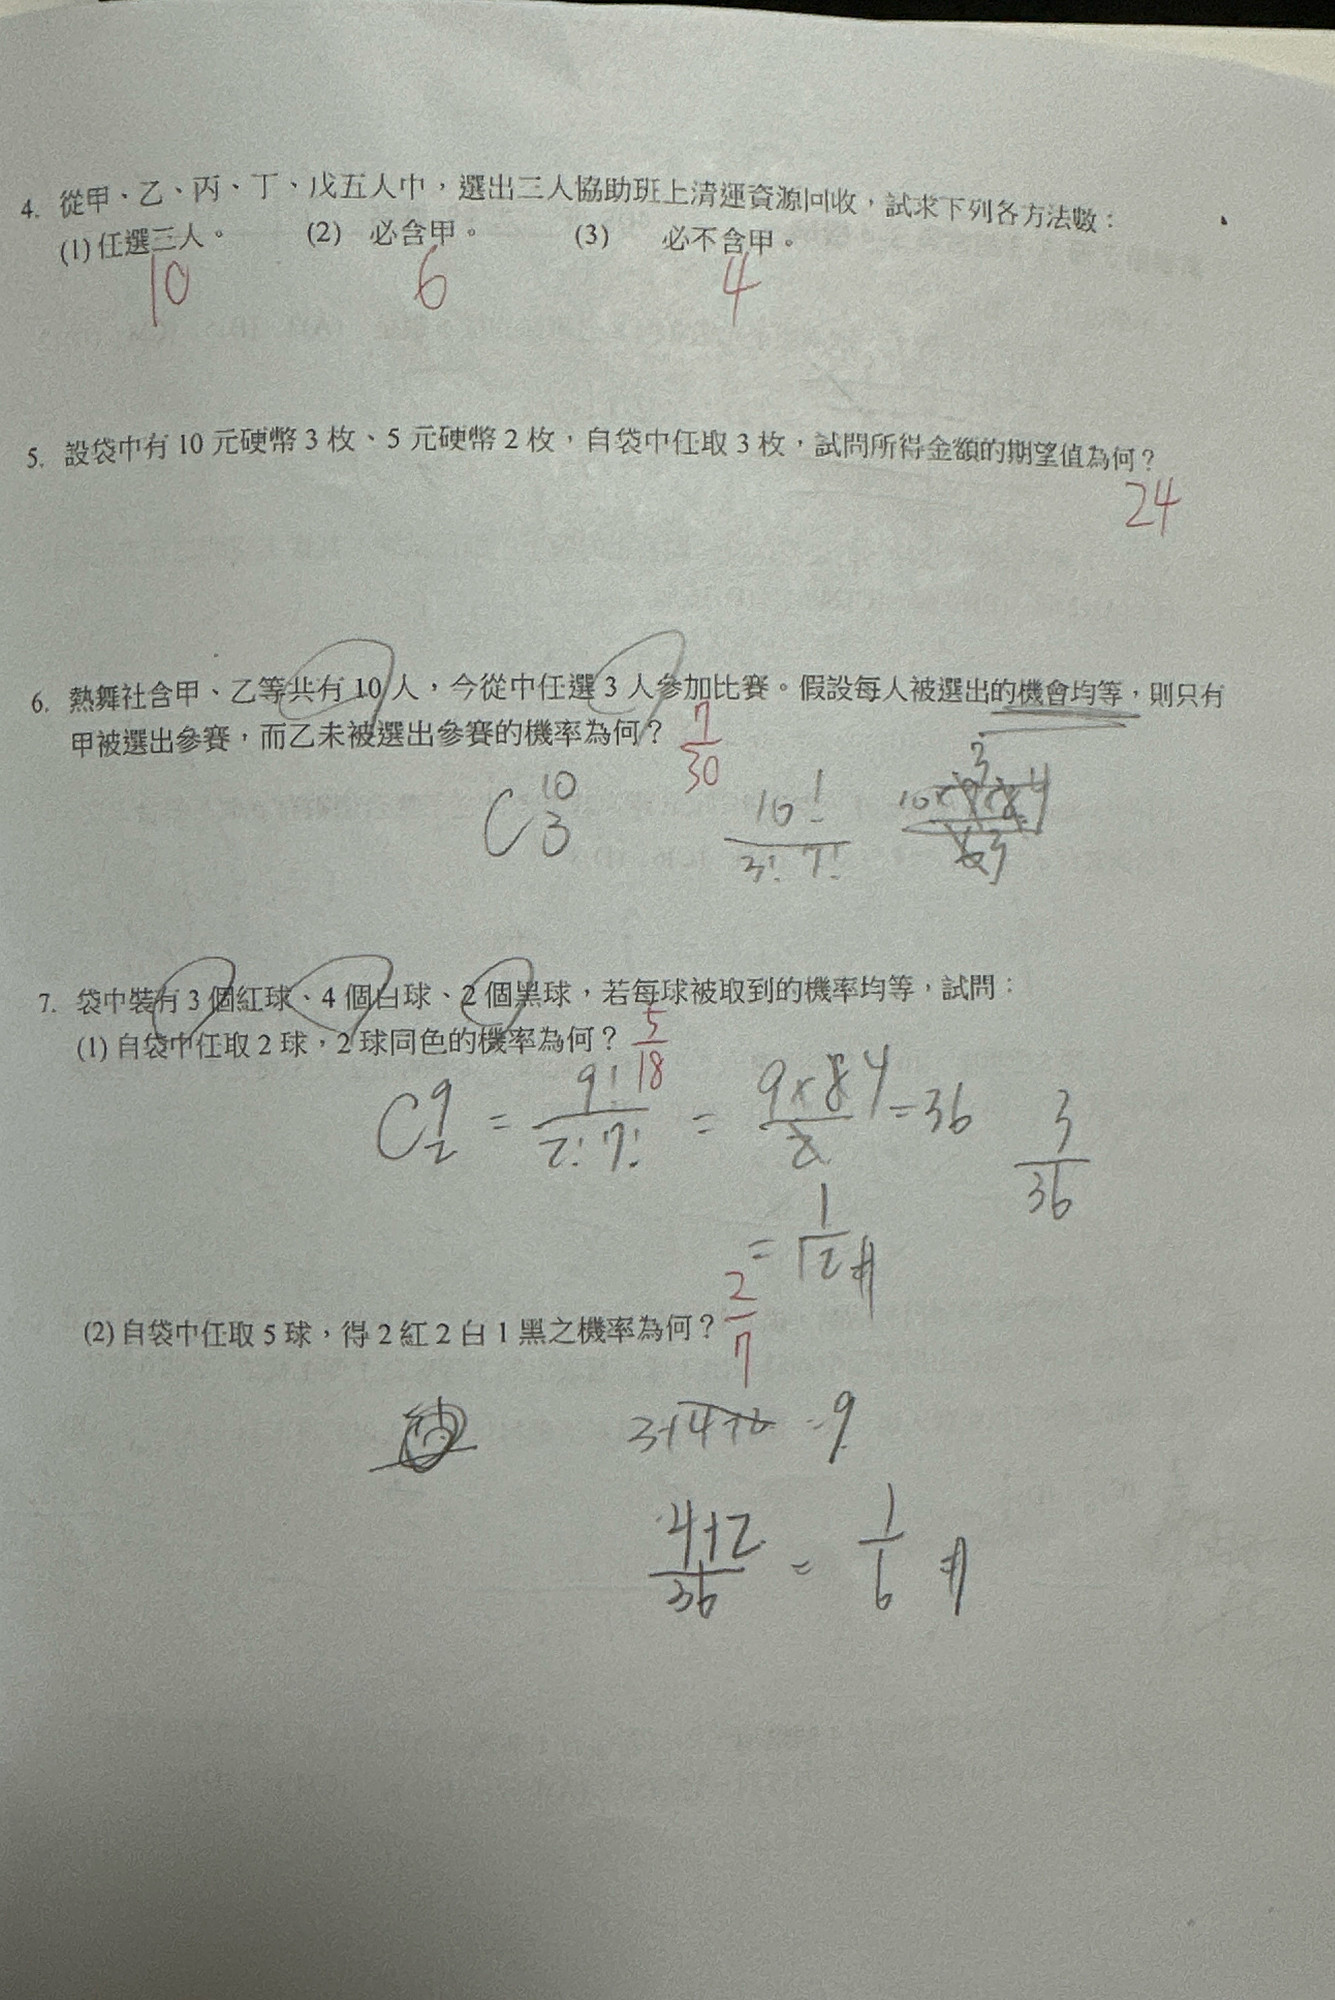 4. 從甲、乙、丙、丁、戊五人中，選出三人協助班上清運資源回收，試求下列各方法數：
(1) 任選三人。 (2) 必含甲。 (3) 必不含甲。
10 6 4
5. 設袋中有 10 元硬幣 3 枚、5 元硬幣 2 枚，自袋中任取 3 枚，試問所得金額的期望值為何？
24
6. 熱舞社含甲、乙等共有 10 人，今從中任選 3 人參加比賽。假設每人被選出的機會均等，則只有
甲被選出參賽，而乙未被選出參賽的機率為何？ 7/30
C 10 3 10!/3!7!
7. 袋中裝有 3 個紅球、4 個白球、2 個黑球，若每球被取到的機率均等，試問：
(1) 自袋中任取 2 球，2 球同色的機率為何？ 5/18
C 9 2 = 9!/2!7! = 9×8/2 4 = 36 3/36
= 1/12 #
(2) 自袋中任取 5 球，得 2 紅 2 白 1 黑之機率為何？ 2/7
3+4+2 = 9
4+2/36 = 1/6 #